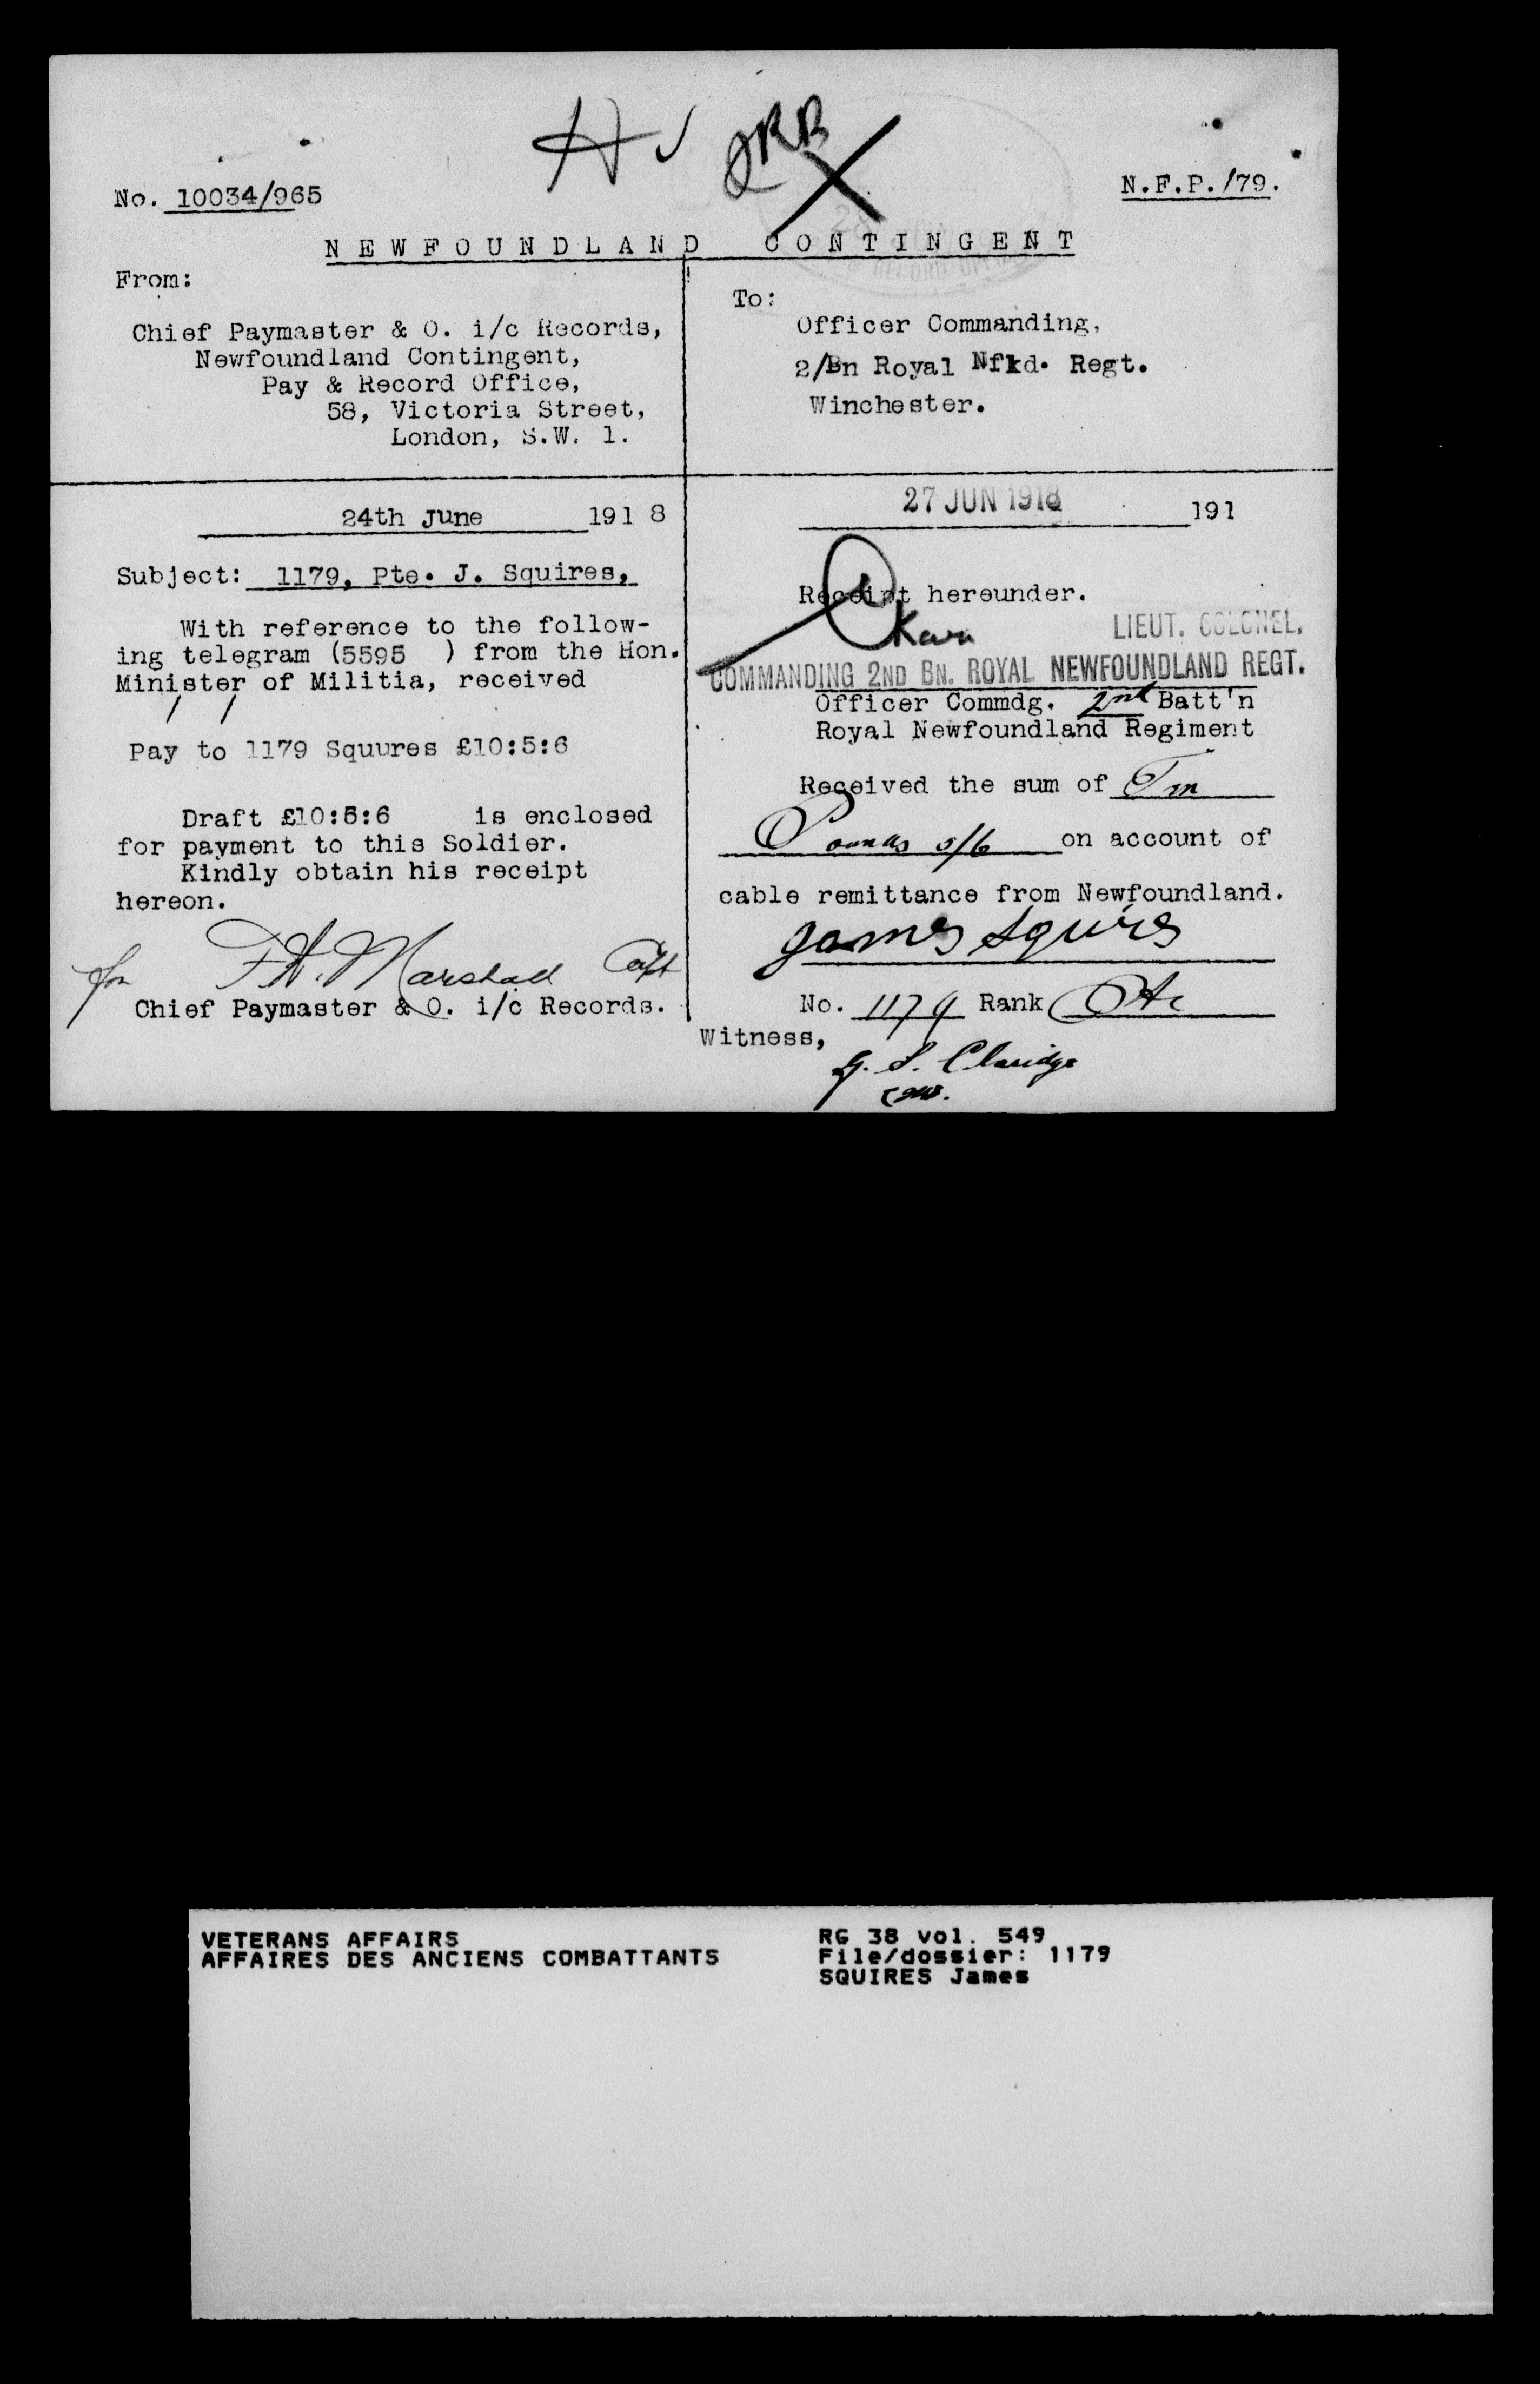 H ✓ JRB X
No. 10034/965
N.F.P./79.
NEWFOUNDLAND CONTINGENT
From:
Chief Paymaster & O. i/c Records,
Newfoundland Contingent,
Pay & Record Office,
58, Victoria Street,
London, S.W. 1.
To:
Officer Commanding,
2/Bn Royal Nfkd. Regt.
Winchester.
24th June 1918
Subject: 1179, Pte. J. Squires,
With reference to the follow-
ing telegram (5595 ) from the Hon.
Minister of Militia, received
/ /
Pay to 1179 Squures £10:5:6
Draft £10:5:6 is enclosed
for payment to this Soldier.
Kindly obtain his receipt
hereon.
for F.A. Marshall Capt
Chief Paymaster & O. i/c Records.
27 JUN 1918 191
Receipt hereunder.
LIEUT. COLONEL,
COMMANDING 2ND BN. ROYAL NEWFOUNDLAND REGT.
Officer Commdg. 2nd Batt'n
Royal Newfoundland Regiment
Received the sum of Ten
Pounds 5/6 on account of
cable remittance from Newfoundland.
James Squires
No. 1179 Rank Pte
Witness,
G. S. Claridge
VETERANS AFFAIRS
AFFAIRES DES ANCIENS COMBATTANTS
RG 38 vol. 549
File/dossier: 1179
SQUIRES James